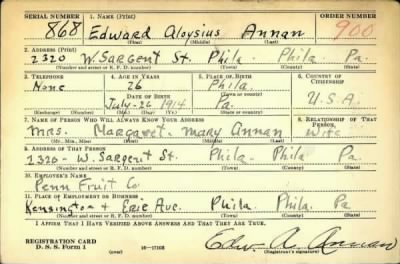 SERIAL NUMBER 1. NAME (Print) ORDER NUMBER
868 Edward Aloysius Annan 900
(First) (Middle) (Last)
2. ADDRESS (Print)
2320 W. Sargent St. Phila. Phila. Pa.
(Number and street or R. F. D. number) (Town) (County) (State)
3. TELEPHONE 4. AGE IN YEARS 5. PLACE OF BIRTH 6. COUNTRY OF CITIZENSHIP
None 26 Phila.
DATE OF BIRTH (Town or county)
July-26 1914 Pa. U.S.A.
(Exchange) (Number) (Mo.) (Day) (Yr.) (State or country)
7. NAME OF PERSON WHO WILL ALWAYS KNOW YOUR ADDRESS 8. RELATIONSHIP OF THAT PERSON
Mrs. Margaret Mary Annan Wife
(Mr., Mrs., Miss) (First) (Middle) (Last)
9. ADDRESS OF THAT PERSON
2320- W. Sargent St. Phila. Phila Pa.
(Number and street or R. F. D. number) (Town) (County) (State)
10. EMPLOYER'S NAME
Penn Fruit Co
11. PLACE OF EMPLOYMENT OR BUSINESS
Kensington + Erie Ave. Phila. Phila. Pa
(Number and street or R. F. D. number) (Town) (County) (State)
I AFFIRM THAT I HAVE VERIFIED ABOVE ANSWERS AND THAT THEY ARE TRUE.
REGISTRATION CARD
D. S. S. Form 1 (over) 16—17105 Edw. A. Annan